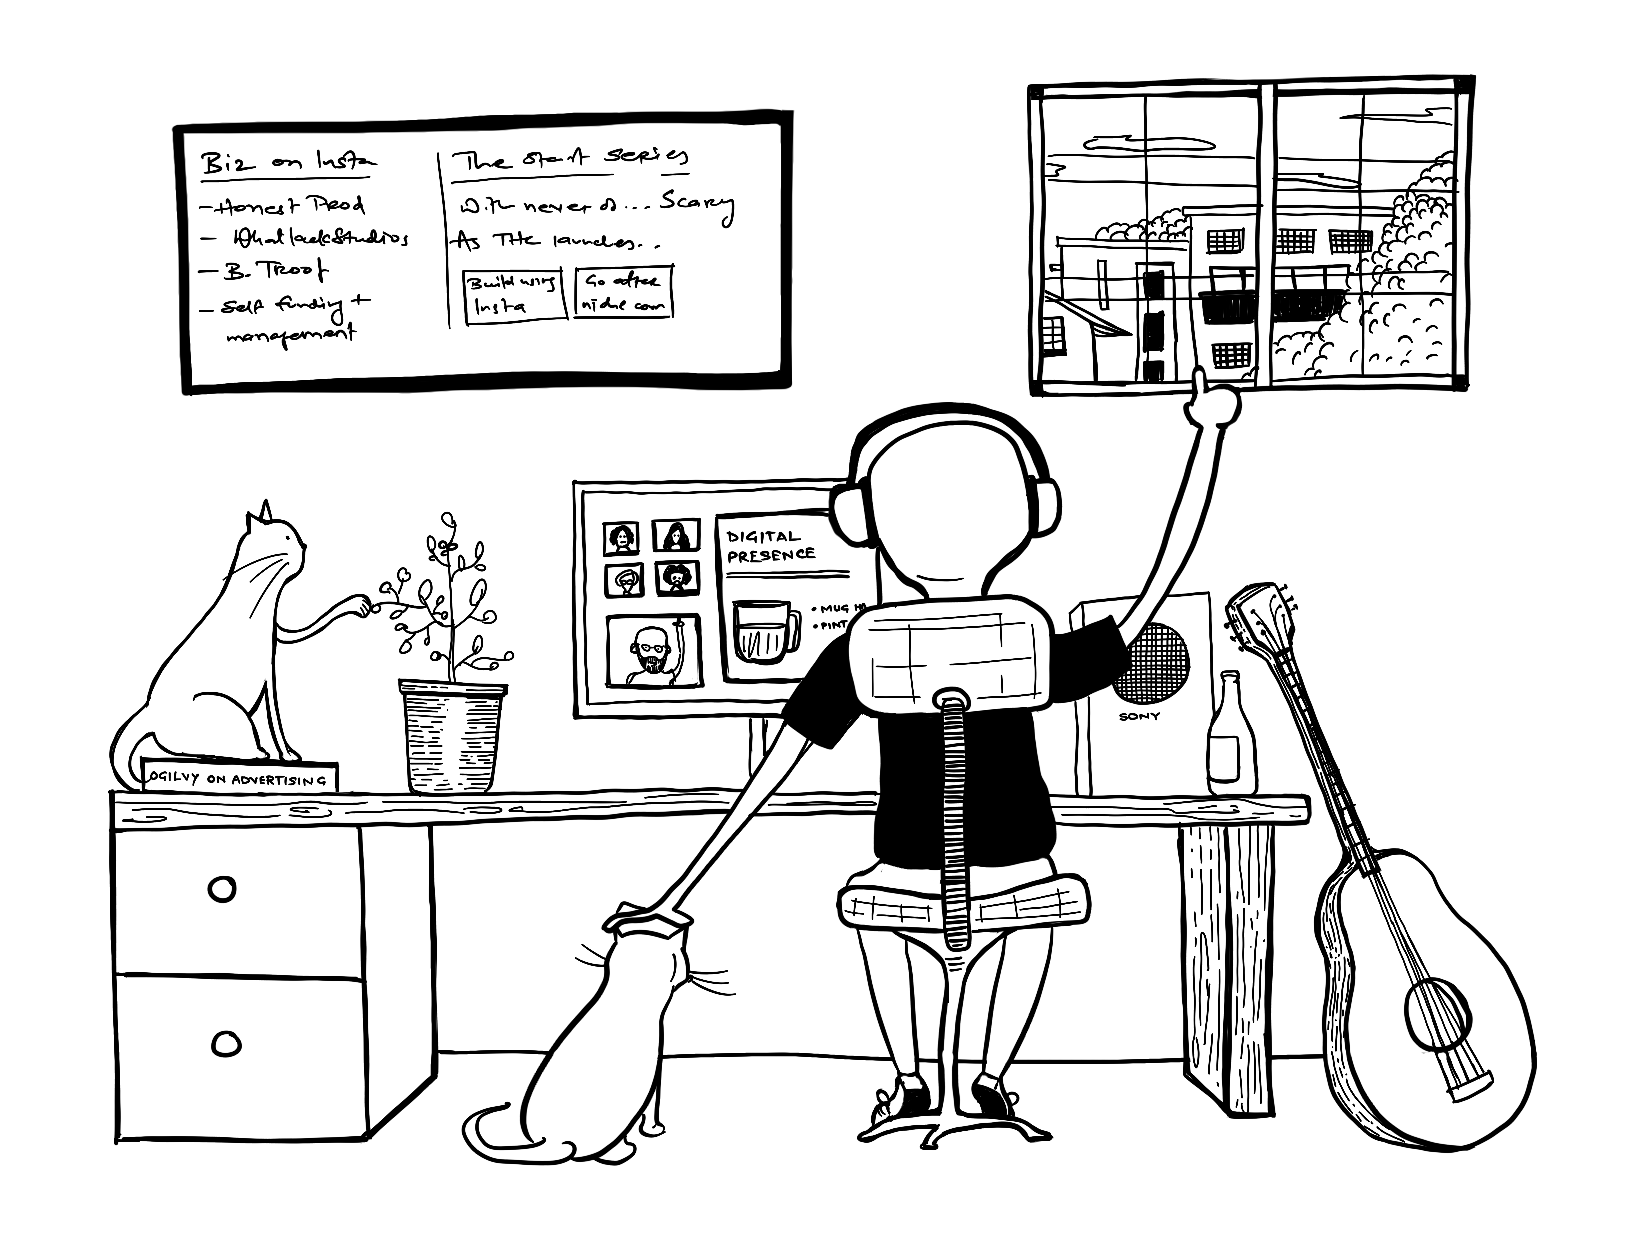 Biz on Insta
- Honest Prod
- Whatlackstudios
- B. Proof
- Self funding +
management
The start series
With never do... Scary
As The launches..
Build using
Insta
Go after
niche com
DIGITAL
PRESENCE
• MUG
• PINT
OGILVY ON ADVERTISING
SONY